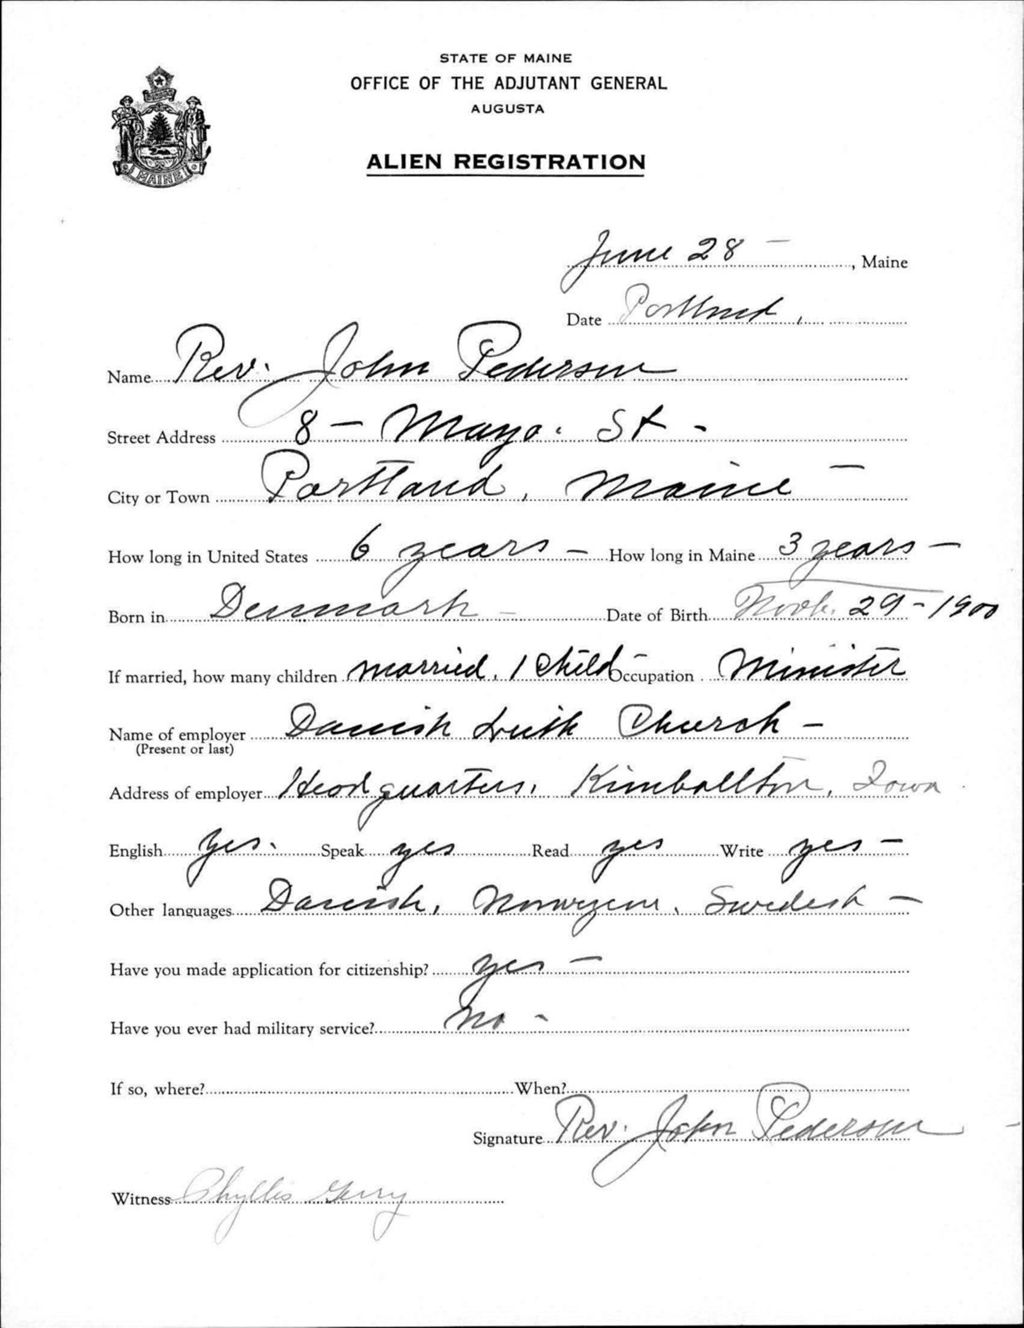 STATE OF MAINE
OFFICE OF THE ADJUTANT GENERAL
AUGUSTA
ALIEN REGISTRATION
MAINE
June 28 -, Maine
Date Portland,
Name Rev. John Pedersen
Street Address 8 - Mayo. St -
City or Town Portland, Maine -
How long in United States 6 years - How long in Maine 3 years -
Born in Denmark - Date of Birth Novb. 29 - 1900
If married, how many children married, 1 Child Occupation Minister
Name of employer Danish Luth Church -
(Present or last)
Address of employer Headquarters, Kimballton, Iowa
English yes. Speak yes Read yes Write yes -
Other languages Danish, Swedish -
Have you made application for citizenship? yes -
Have you ever had military service? No -
If so, where? When?
Signature Rev. John Pedersen -
Witness Phyllis Gerry